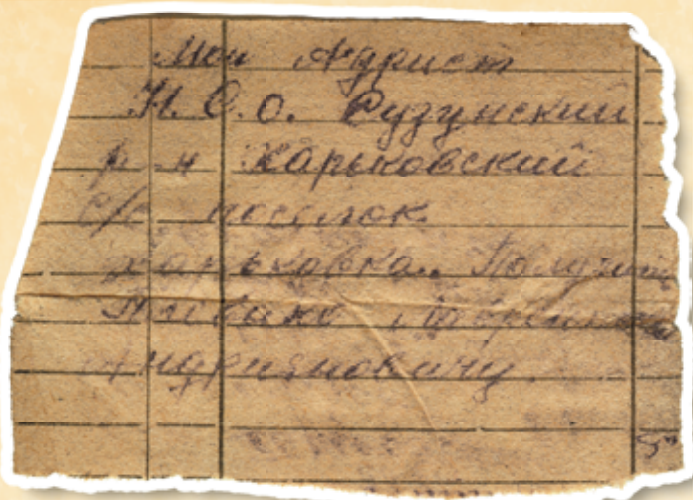 Мой Адрист
Н.С.О. Сузунский
р-н Харьковский
с/с поселок
Харьковка. Получить
Андрияновичу.